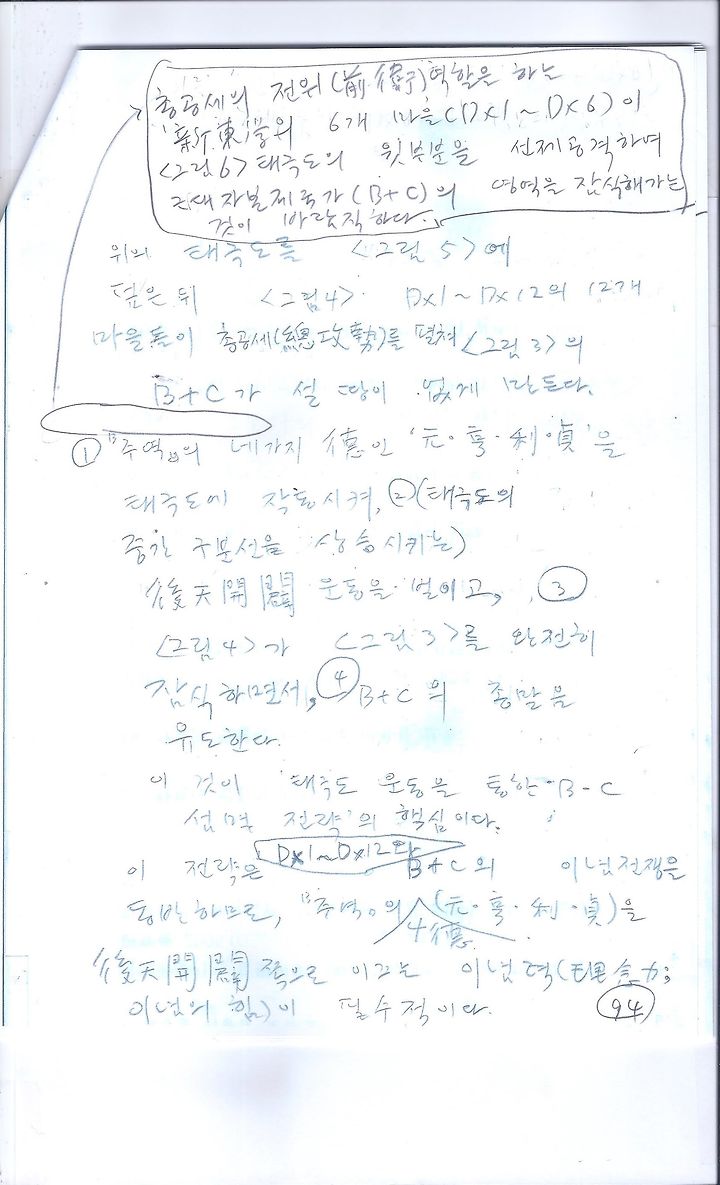 총공세의 전위(前衛)역할을 하는
'新 東學'위 6개 마을(Dx1~Dx6)이
<그림6>태극도의 윗부분을 선제공격하며
근대자본제국가(B+C)의 영역을 잠식해가는
것이 바람직하다.
위의 태극도를 <그림 5>에
덮은 뒤 <그림4> Dx1~Dx12의 12개
마을들이 총공세(總攻勢)를 펼쳐 <그림 3>의
B+C가 설 땅이 없게 만든다.
① 『주역』의 네가지 德인 '元·亨·利·貞'을
태극도에 작동시켜, ②(태극도의
중간 구분선을 상승시키는)
後天開闢 운동을 벌이고, ③
<그림4>가 <그림3>를 완전히
잠식하면서, ④ B+C의 종말을
유도한다.
이것이 '태극도 운동을 통한 B-C
섬멸 전략'의 핵심이다.
이 전략은 Dx1~Dx12와 B+C의 이념전쟁을
동반하므로, 『주역』의 4德(元·亨·利·貞)을
後天開闢 쪽으로 이끄는 이념력(理念力;
이념의 힘)이 필수적이다.
94